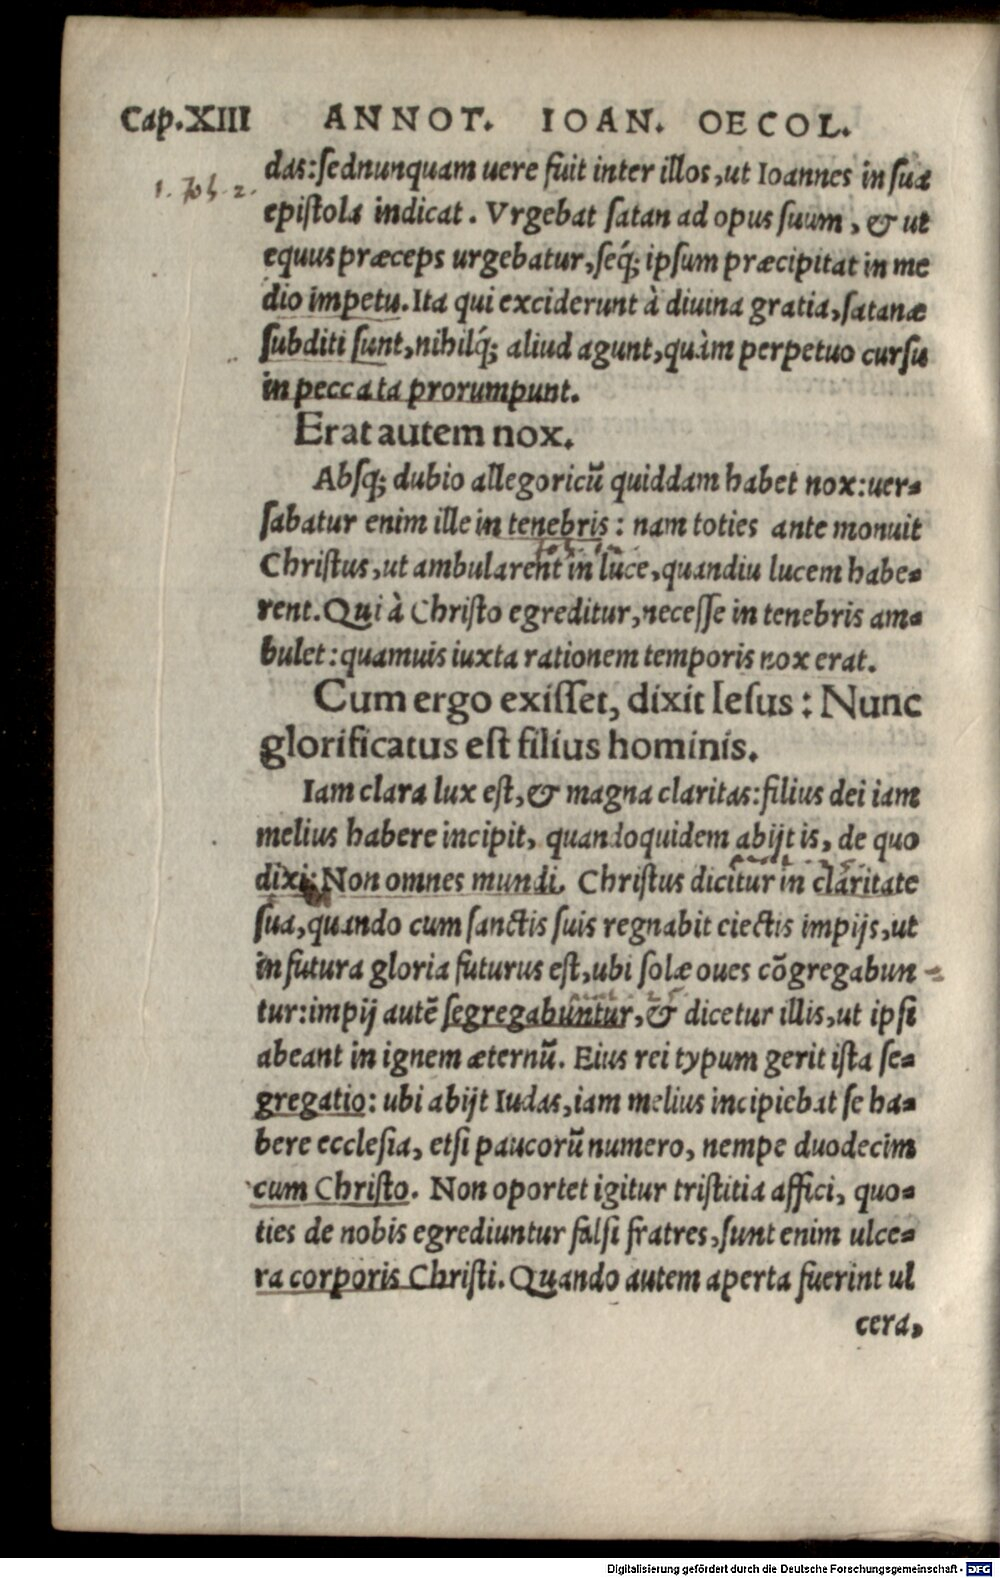 Cap.XIII ANNOT. IOAN. OECOL.
das:ſednunquam uere fuit inter illos,ut Ioannes in ſua
1. Joh. 2.
epiſtola indicat. Vrgebat ſatan ad opus ſuum, & ut
equus præceps urgebatur,ſeq́; ipſum præcipitat in me
dio impetu. Ita qui exciderunt à diuina gratia,ſatanæ
ſubditi ſunt,nihilq́; aliud agunt,quàm perpetuo curſu
in peccata prorumpunt.
Erat autem nox.
Abſq; dubio allegoricũ quiddam habet nox:uer-
ſabatur enim ille in tenebris: nam toties ante monuit
Chriſtus,ut ambularent in luce,quandiu lucem habe-
rent. Qui à Chriſto egreditur,neceſſe in tenebris am-
bulet:quamuis iuxta rationem temporis nox erat.
Cum ergo exiſſet, dixit Ieſus: Nunc
glorificatus eſt filius hominis.
Iam clara lux eſt,& magna claritas:filius dei iam
melius habere incipit, quandoquidem abijt is, de quo
dixi: Non omnes mundi. Chriſtus dicitur in claritate
ſua,quando cum ſanctis ſuis regnabit eiectis impijs,ut
in futura gloria futurus eſt,ubi ſolæ oues cõgregabun-
tur:impij autẽ ſegregabuntur,& dicetur illis,ut ipſi
abeant in ignem æternũ. Eius rei typum gerit iſta ſe-
gregatio: ubi abijt Iudas,iam melius incipiebat ſe ha-
bere eccleſia, etſi paucorũ numero, nempe duodecim
cum Chriſto. Non oportet igitur triſtitia affici, quo-
ties de nobis egrediuntur falſi fratres,ſunt enim ulce-
ra corporis Chriſti. Quando autem aperta fuerint ul
cera,
Digitalisierung gefördert durch die Deutsche Forschungsgemeinschaft - DFG